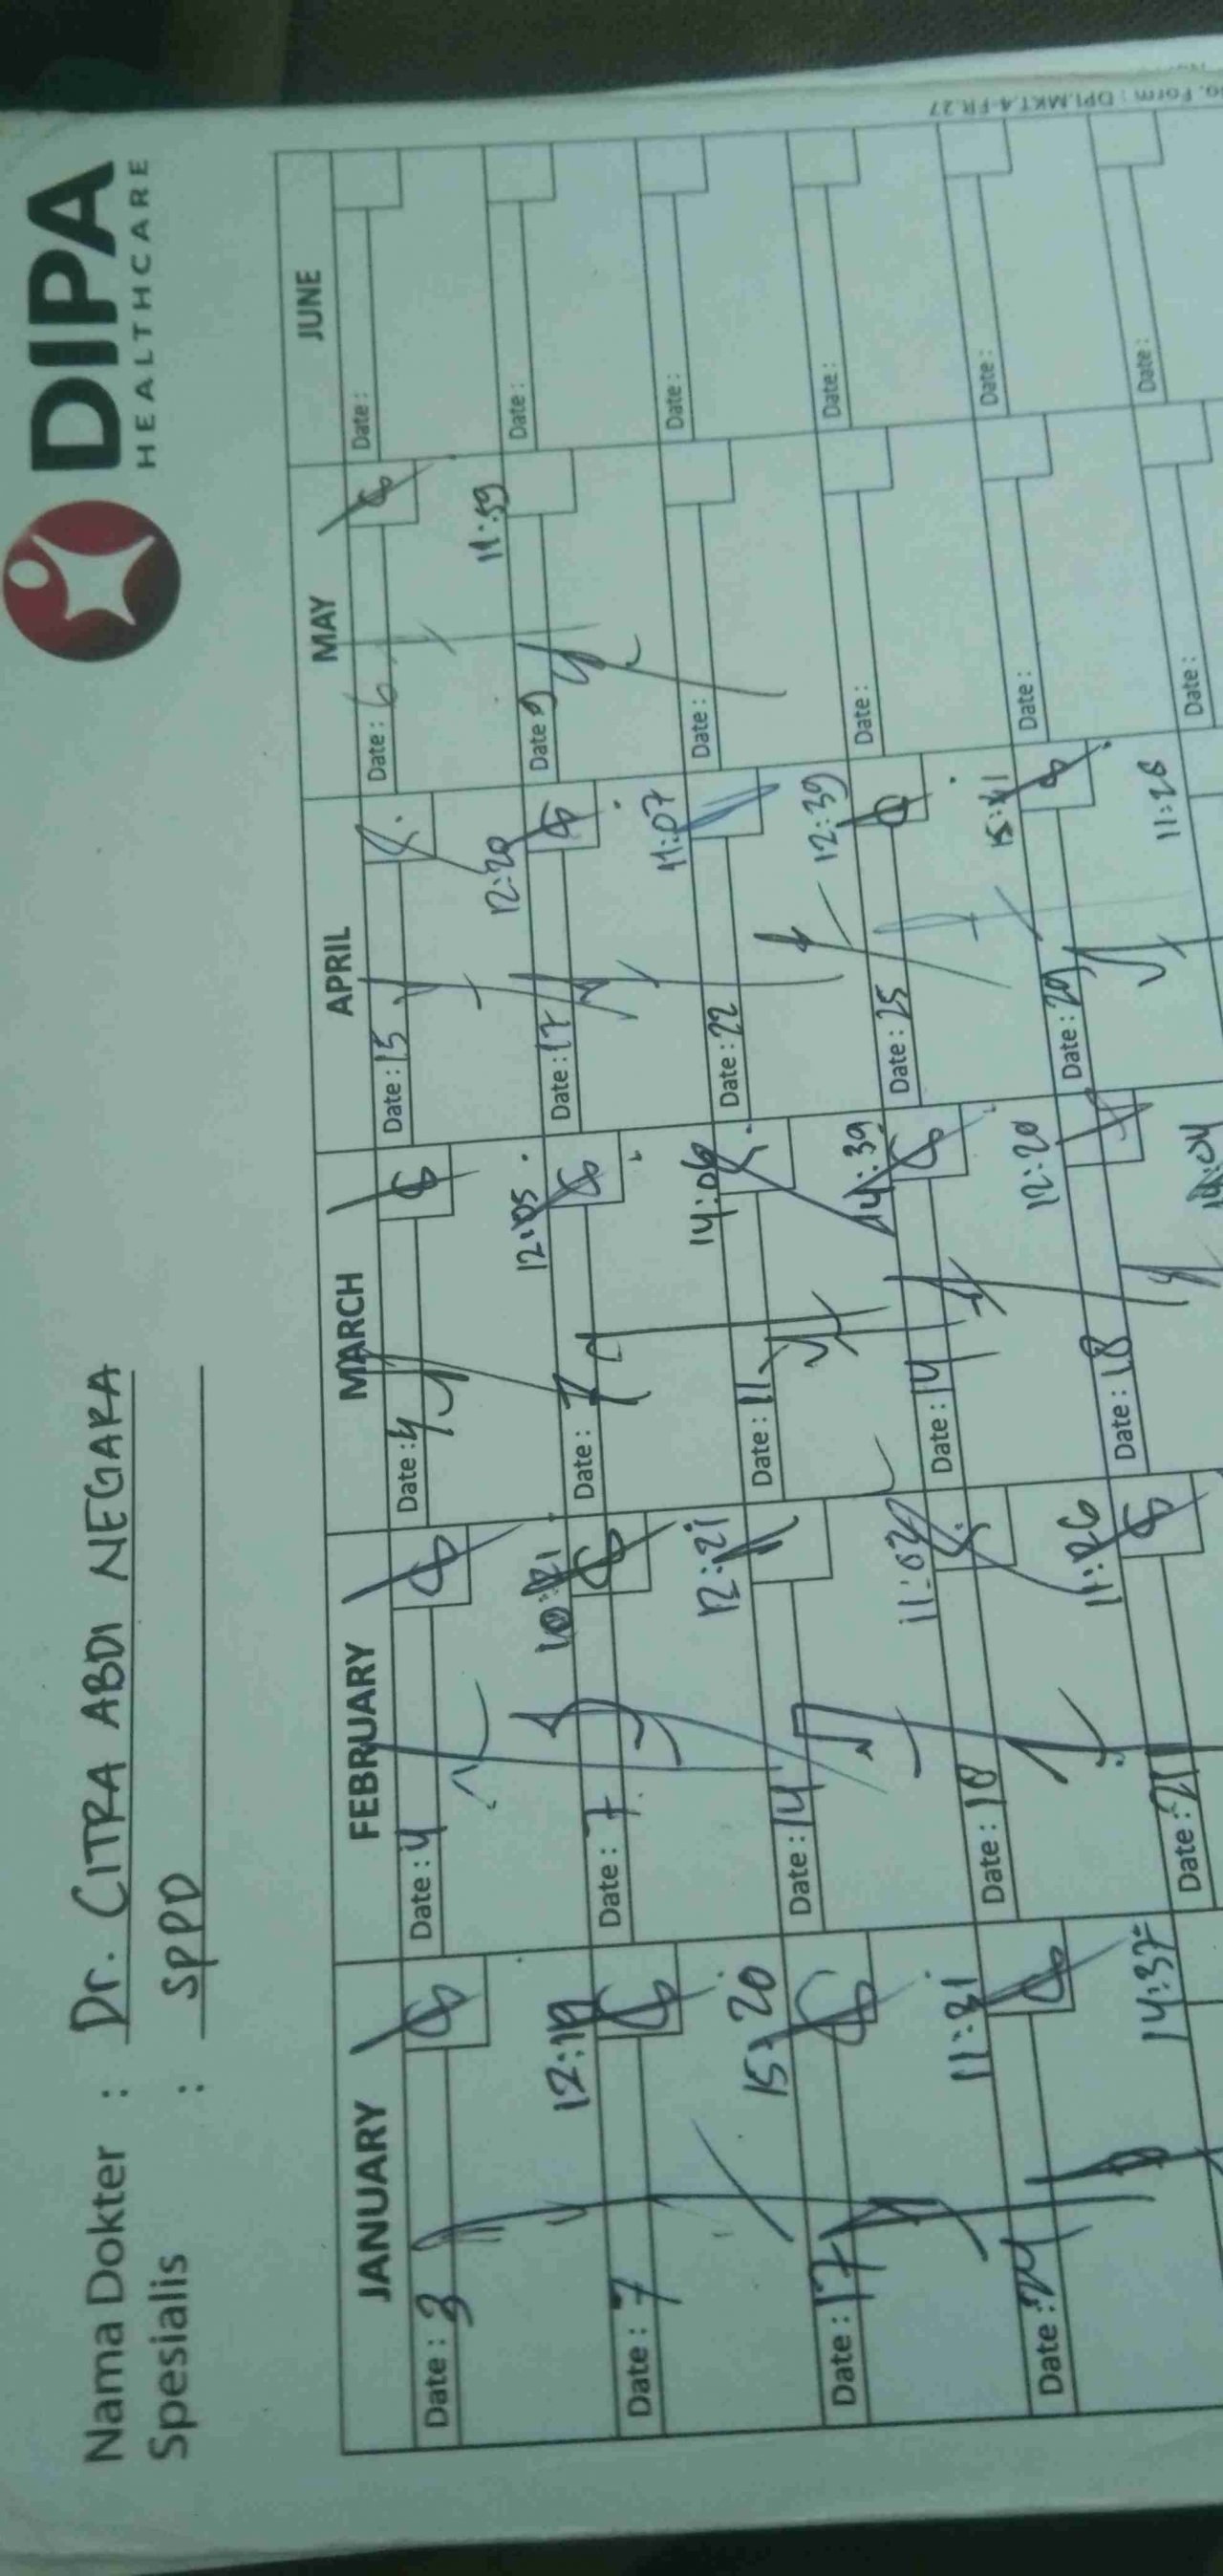 DIPA
HEALTHCARE
Nama Dokter : Dr. CITRA ABDI NEGARA
Spesialis : SPPD
JANUARY FEBRUARY MARCH APRIL MAY JUNE
Date : 3 Date : 4 Date : 4 Date : 15 Date : 6 Date :
12:19 12:05 12:20 11:59
Date : 7 Date : 7 Date : 7 Date : 17 Date : 9 Date :
15:20 12:21 14:06 11:07
Date : 17 Date : 14 Date : 11 Date : 22 Date : Date :
11:31 14:39 12:39
Date : 24 Date : 18 Date : 14 Date : 25 Date : Date :
14:37 11:26 12:20 15:41
Date : 21 Date : 18 Date : 29 Date : Date :
11:28
Date : Date :
Form : DPI.MKT.4-FR.27